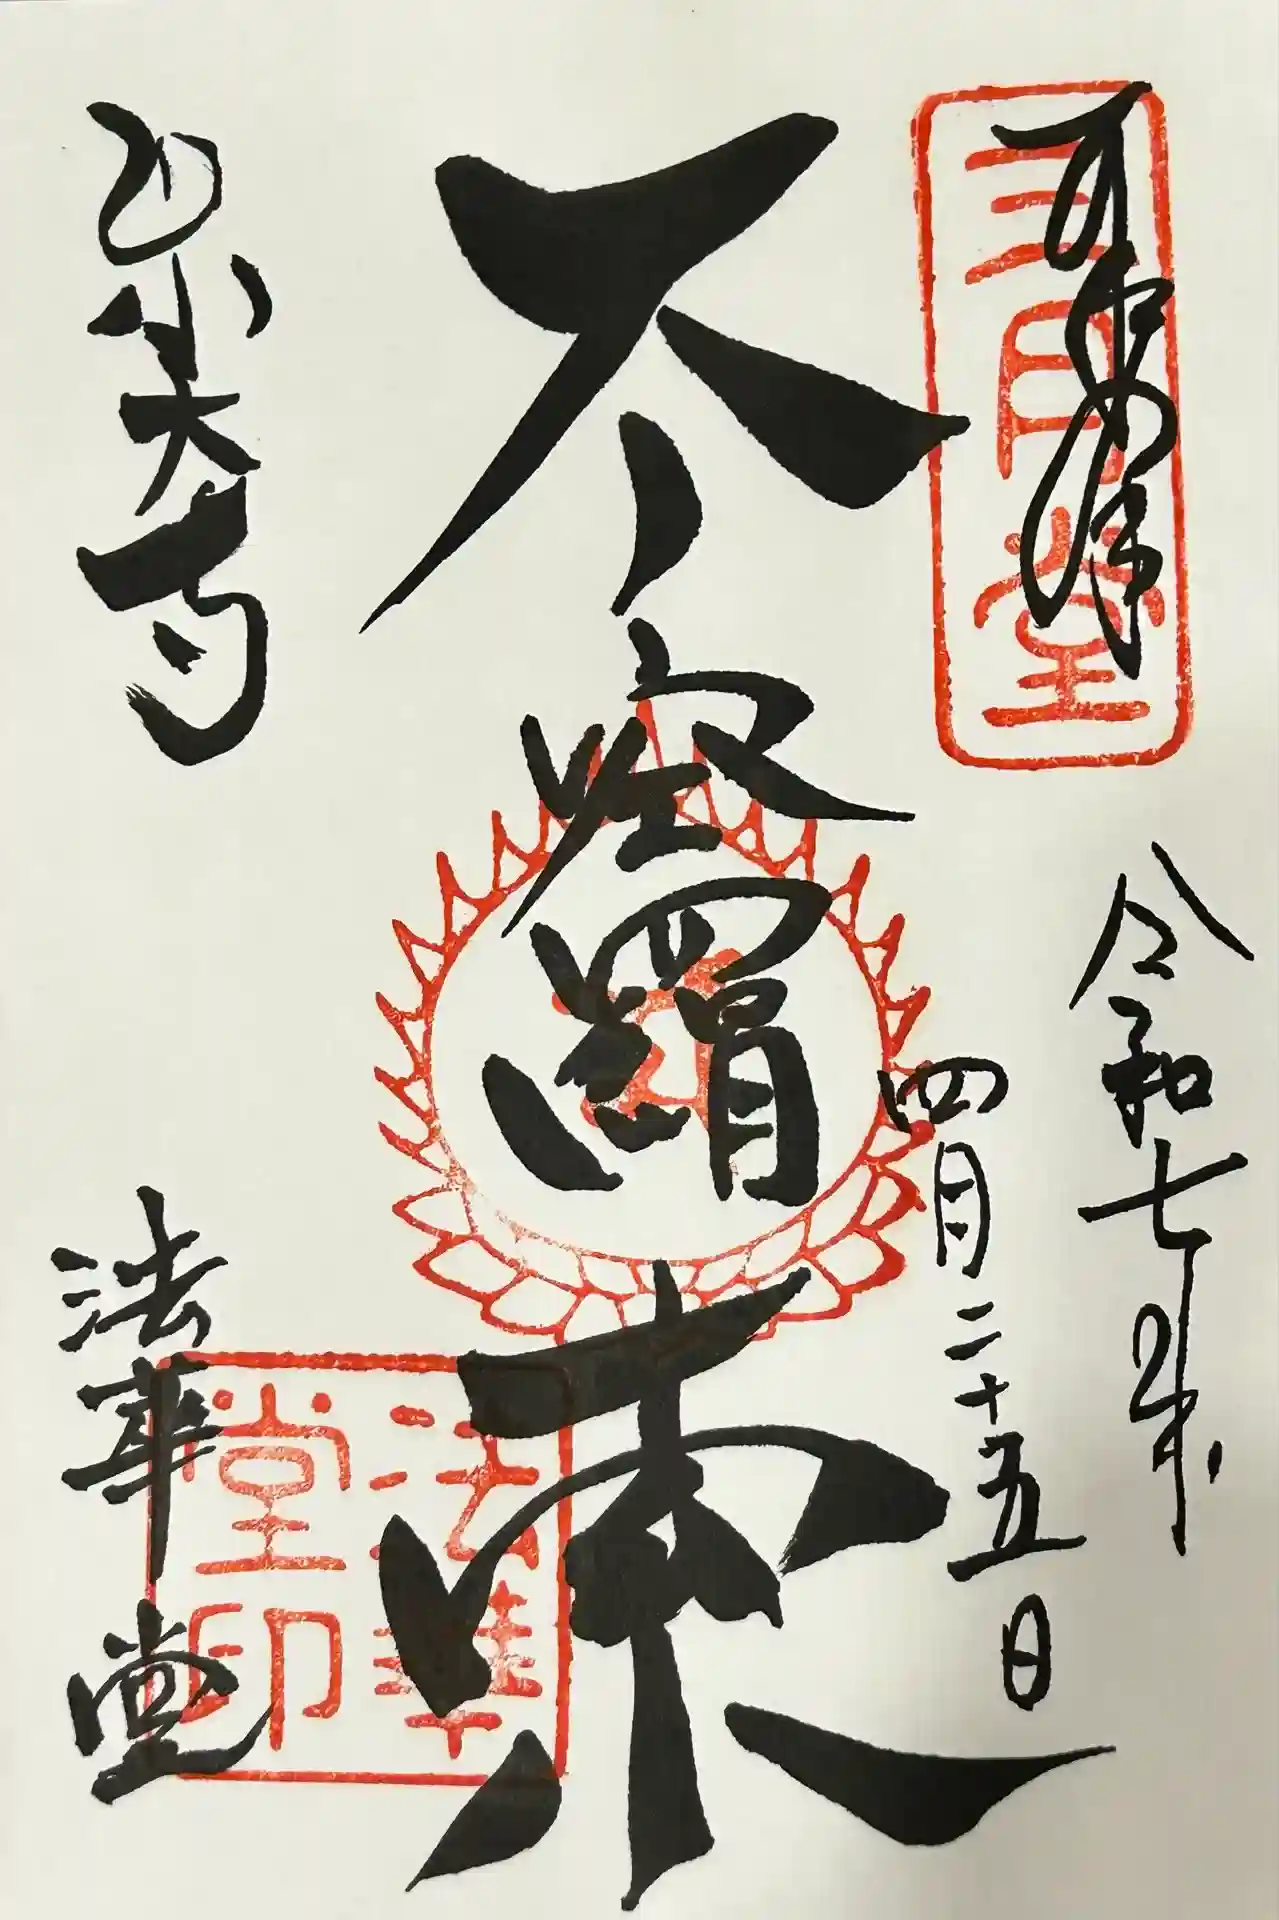 三月堂
令和七年
四月二十五日
不空羂索
東大寺 法華堂
法華
堂印